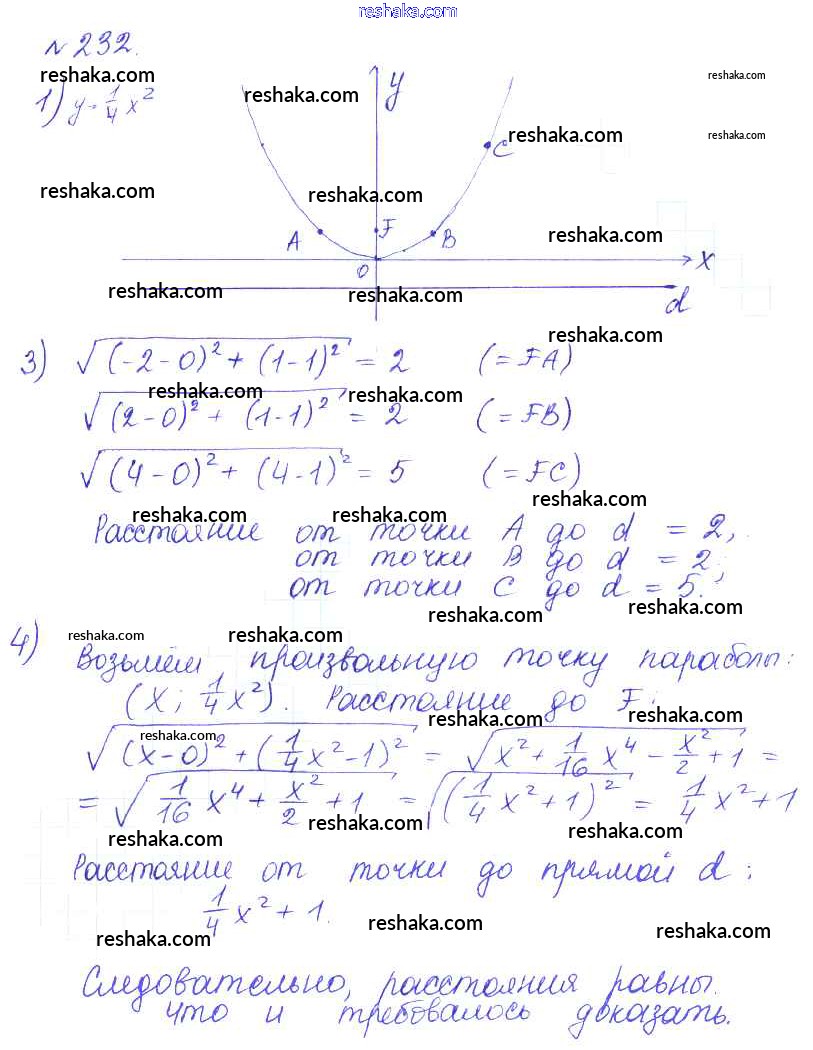 reshaka.com
№ 232.
reshaka.com reshaka.com
1) y = 1/4 x²
reshaka.com y
reshaka.com C reshaka.com
reshaka.com reshaka.com
A F B reshaka.com
O x
reshaka.com reshaka.com d
reshaka.com
3) √((-2-0)² + (1-1)²) = 2 (= FA)
reshaka.com reshaka.com
√((2-0)² + (1-1)²) = 2 (= FB)
√((4-0)² + (4-1)²) = 5 (= FC)
reshaka.com reshaka.com reshaka.com
Расстояние от точки A до d = 2,
от точки B до d = 2,
от точки C до d = 5.
reshaka.com reshaka.com
4) reshaka.com reshaka.com
Возьмём произвольную точку параболы:
(x; 1/4 x²). Расстояние до F:
reshaka.com reshaka.com reshaka.com
√((x-0)² + (1/4 x² - 1)²) = √(x² + 1/16 x⁴ - x²/2 + 1) =
= √(1/16 x⁴ + x²/2 + 1) = √((1/4 x² + 1)²) = 1/4 x² + 1
reshaka.com reshaka.com reshaka.com
Расстояние от точки до прямой d:
1/4 x² + 1.
reshaka.com reshaka.com reshaka.com
Следовательно, расстояния равны.
что и требовалось доказать.